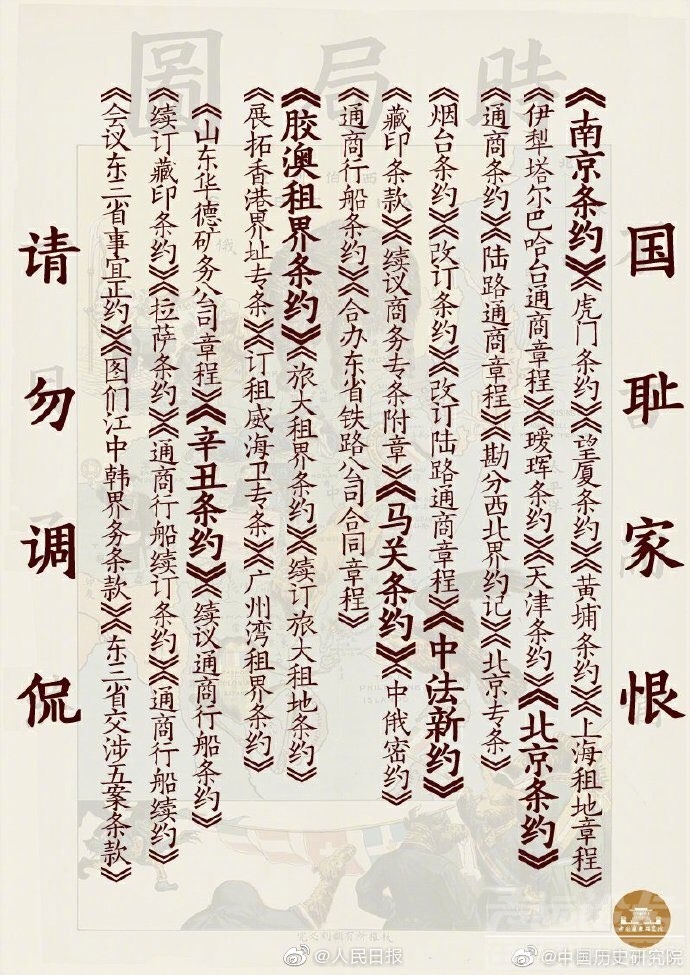 時局圖
国耻家恨
《南京条约》《虎门条约》《望厦条约》《黄埔条约》《上海租地章程》
《伊犁塔尔巴哈台通商章程》《瑷珲条约》《天津条约》《北京条约》
《通商条约》《陆路通商章程》《勘分西北界约记》《北京专条》
《烟台条约》《改订条约》《改订陆路通商章程》《中法新约》
《藏印条款》《续议商务专条附章》《马关条约》《中俄密约》
《通商行船条约》《合办东省铁路公司合同章程》
《胶澳租界条约》《旅大租界条约》《续订旅大租地条约》
《展拓香港界址专条》《订租威海卫专条》《广州湾租界条约》
《山东华德矿务公司章程》《辛丑条约》《续议通商行船条约》
《续订藏印条约》《拉萨条约》《通商行船续订条约》《通商行船续约》
《会议东三省事宜正约》《图们江中韩界务条款》《东三省交涉五案条款》
请勿调侃
@人民日报
@中国历史研究院